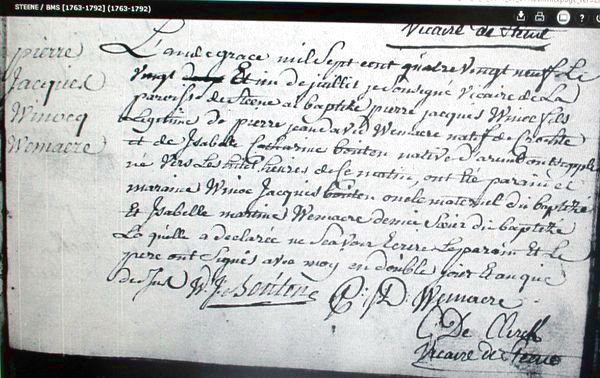 STEENE / BMS [1763-1792] (1763-1792)
Vicaire de Steene
pierre
Jacques
Winocq
Wemaere
L'an de grace mil sept cent quatre vingt neuf Le
vingt Et un de juillet je soussigné Vicaire de La
paroisse de Steene ai baptisé pierre jacques Winoc fils
Legitime de pierre jean david Wemaere natif de
et de Isabelle Catharine bouton native d'
né vers Les huit heures de ce matin, ont été parain et
maraine Winoc Jacques bouton oncle maternel du baptisé
Et Isabelle martine Wemaere demie Sœur du baptisé
La quelle a declarée ne Scavoir Ecrire Le parain et Le
pere ont Signés avec moy en double jour Et an que
dessus W: J: boutone P: J: D: Wemaere
C: De Clerck
Vicaire de Steene